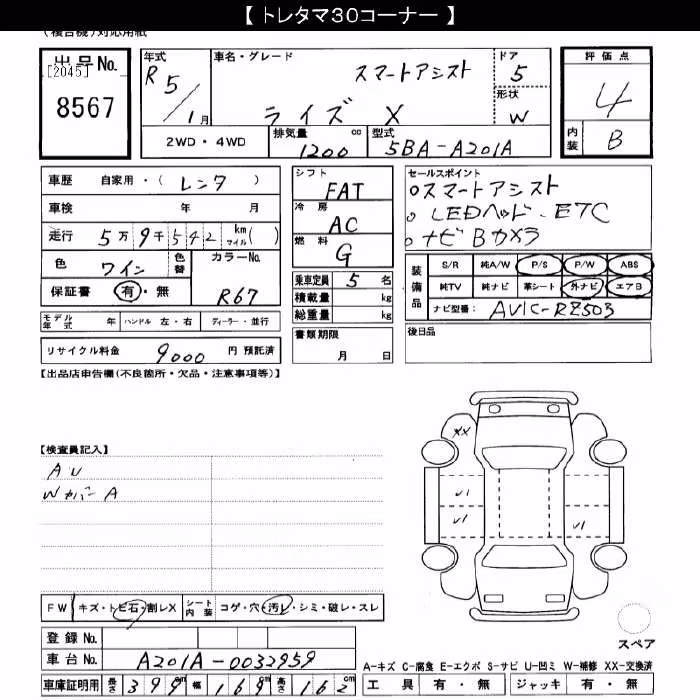 【 トレタマ30コーナー 】
(複合記)対応用紙
出品No.
[2045]
8567
年式
R 5 / 1 月
車名・グレード
スマートアシスト
ライズ X
ドア
5
形状
W
評価点
4
内装
B
2WD・4WD
排気量 1200 cc
型式
5BA-A201A
車歴 自家用・( レンタ )
車検 年 月
走行 5万9千542 km マイル( )
色 ワイン 色替 カラーNo. R67
保証書 有・無
モデル年式 年 ハンドル 左・右 ディーラー・並行
リサイクル料金 9000 円 預託済
シフト
FAT
冷房
AC
燃料
G
乗車定員 5 名
積載量 kg
総重量 kg
書類期限
月 日
セールスポイント
○スマートアシスト
○LEDヘッド・ETC
○ナビBカメラ
装備品
S/R 純A/W P/S P/W ABS
純TV 純ナビ 革シート 外ナビ エアB
ナビ型番: AVIC-RZ503
後日品
【出品店申告欄(不良箇所・欠品・注意事項等)】
【検査員記入】
AU
Wカバー A
XX
U1
U1
U1
FW キズ・トビ石・割レX シート内装 コゲ・穴・汚レ・シミ・破レ・スレ
登録No.
車台No. A201A-0032959
車庫証明用 長さ 399 幅 169 高さ 162
スペア
A-キズ C-腐食 E-エクボ S-サビ U-凹ミ W-補修 XX-交換済
工具 有・無 ジャッキ 有・無